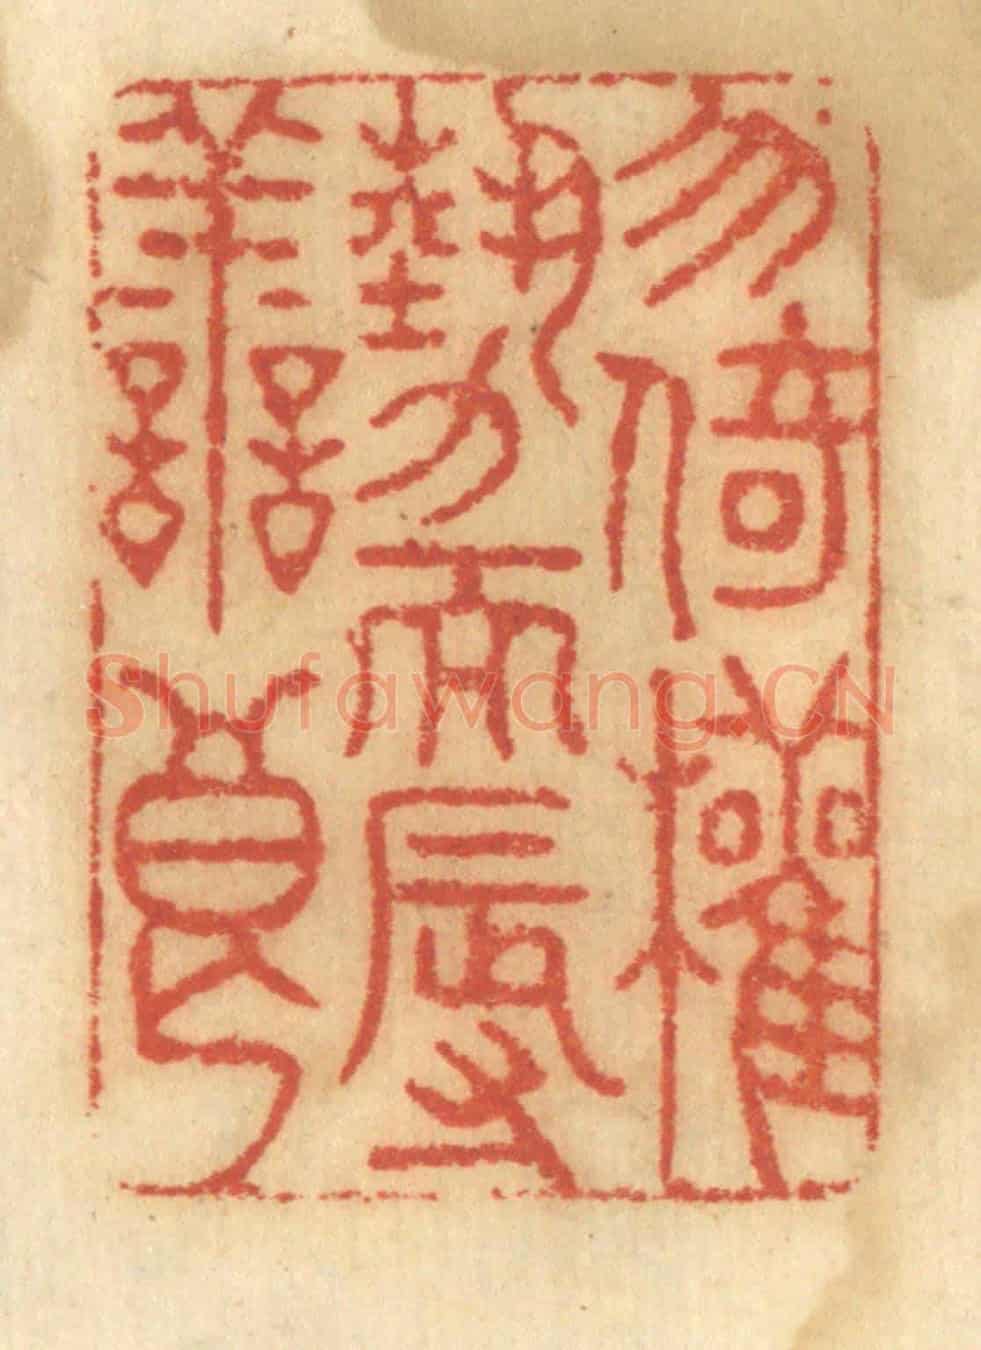 勿倚權
勢而辱
善良
Shufawang.CN